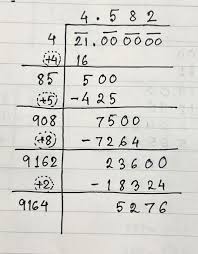 4.582
4 21.000000
+4 16
85 500
+5 -425
908 7500
+8 -7264
9162 23600
+2 -18324
9164 5276